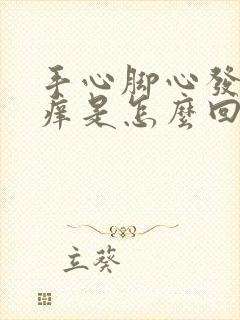 手心脚心發
痒是怎麼回
立葵